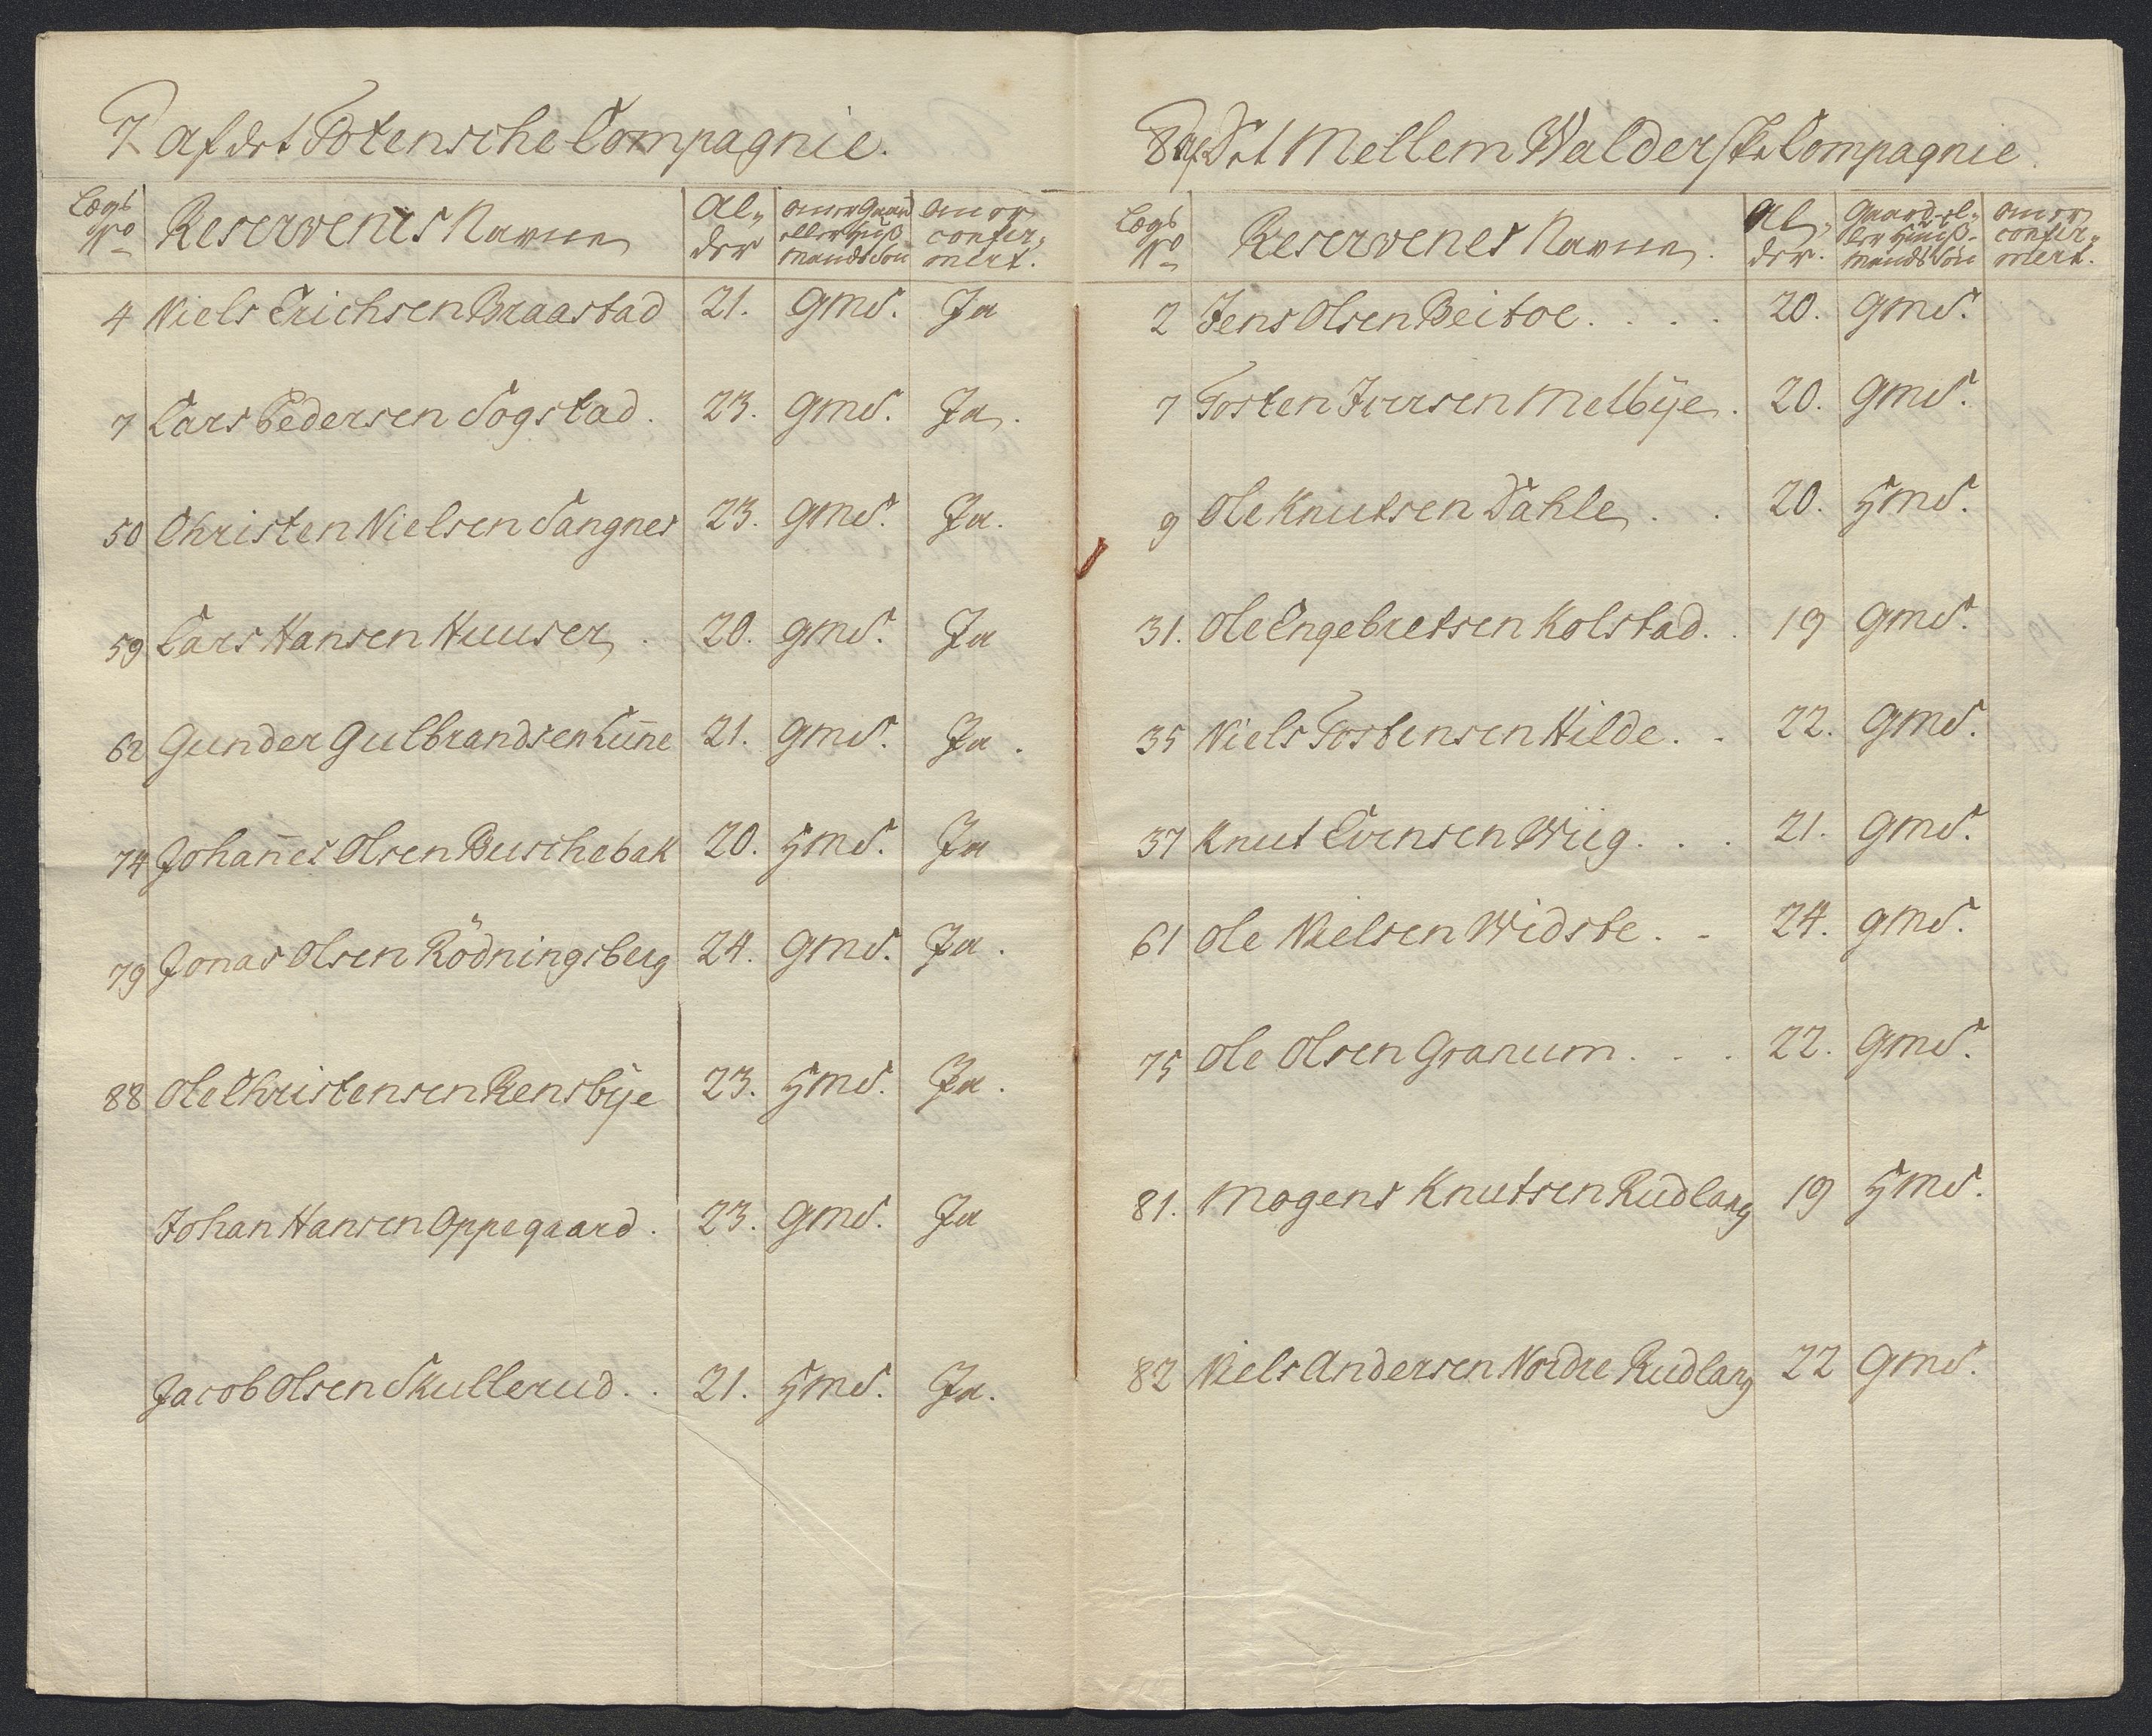 7 af det Totensche Compagnie.
Lægs No Reservenes Navne Al- der om er Gaard eller Huus- mands Søn om er confir- mert.
4 Niels Erichsen Braastad 21. GmS. Ja
7 Lars Pedersen Sogstad. 23. GmS. Ja.
50 Christen Nielsen Sangnes 23. GmS. Ja.
59 Lars Hansen Huuser. 20. GmS. Ja
62 Gunder Gulbrandsen Lun̄e 21. GmS. Ja.
74 Johan̄es Olsen Buschebak 20. HmS. Ja
79 Jonas Olsen Rödningsberg 24. GmS. Ja.
88 Ole Christensen Rensbÿe 23. HmS. Ja.
Johan Hansen Oppegaard. 23. GmS. Ja
Jacob Olsen Skullerud. . 21. HmS. Ja.
8 af Det Mellem Walderske Compagnie.
Lægs No Reservenes Navne. Al- der. Gaard- el- ler Huus- mands Søn om er confir- mert.
2 Jens Olsen Beitoe. . . . 20. GmS.
7 Tosten Iversen Melbÿe. 20. GmS.
9 Ole Knutsen Dahle. . 20. HmS.
31. Ole Engebretsen Kolstad. . 19 GmS.
35 Niels Tostensen Hilde. . 22. GmS.
37 Knut Evensen Wiig. . . 21. GmS.
61 Ole Nielsen Widste. - 24. GmS.
75 Ole Olsen Granum. . . 22. GmS.
81. Mogens Knutsen Rudlang 19 HmS.
82 Niels Andersen Nordre Rudlang 22 GmS.